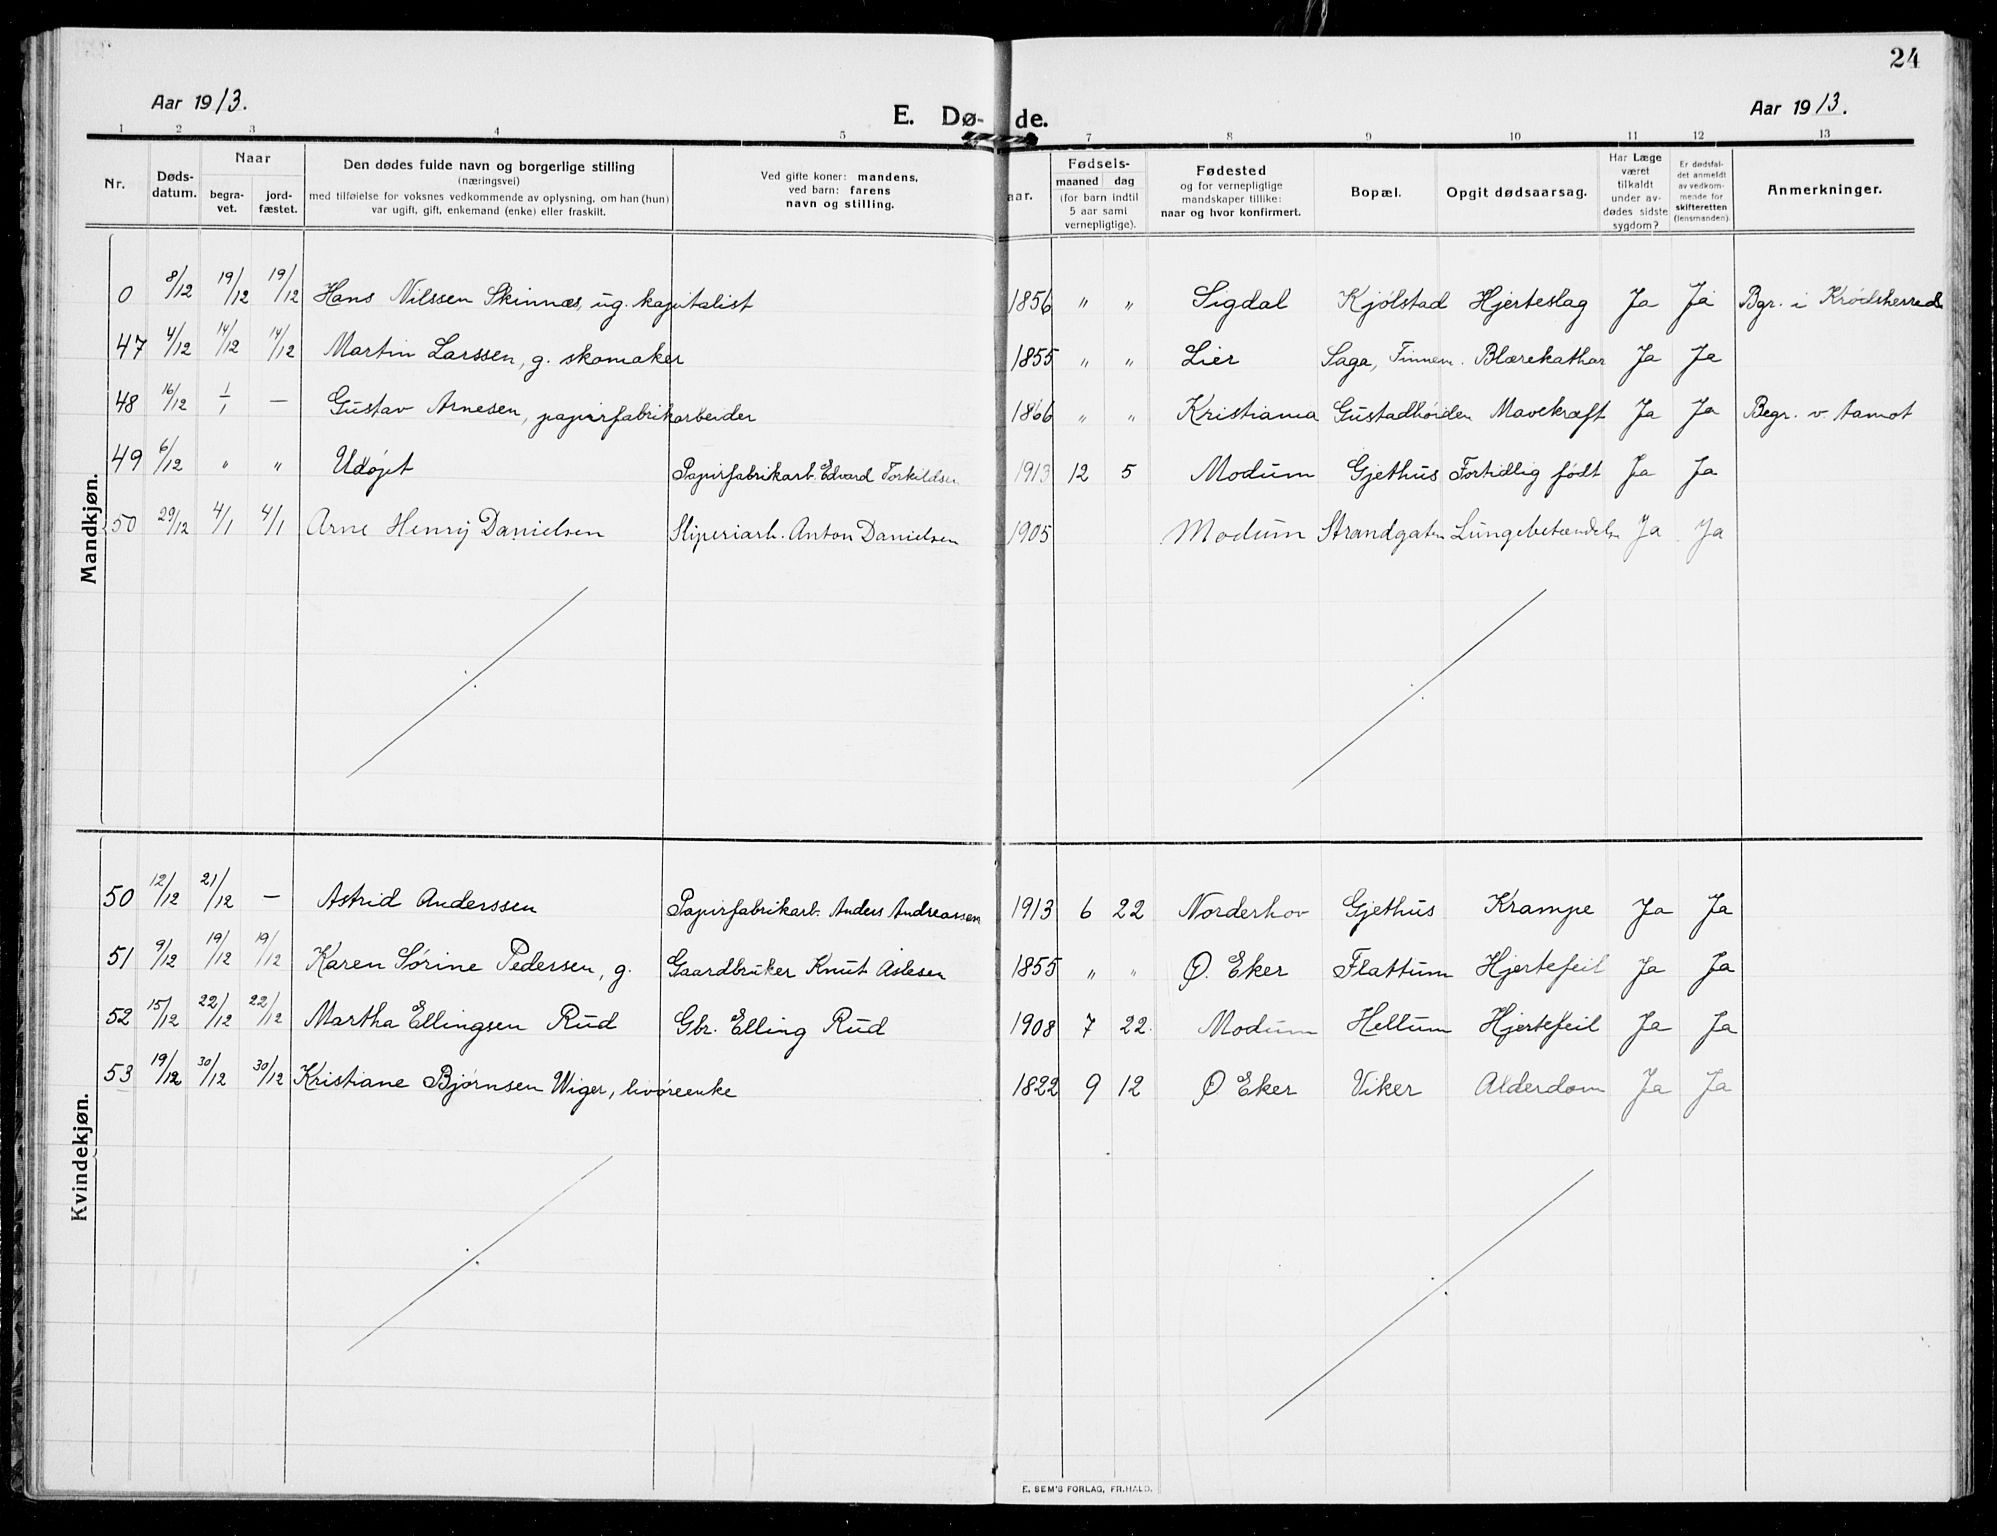 24
Aar 1913.
E. Dø- de.
Aar 1913.
1 2 3 4 5 7 8 9 10 11 12 13
Nr.
Døds-
datum.
Naar
begra-
vet.
jord-
fæstet.
Den dødes fulde navn og borgerlige stilling
(næringsvei)
med tilføielse for voksnes vedkommende av oplysning, om han (hun)
var ugift, gift, enkemand (enke) eller fraskilt.
Ved gifte koner: mandens,
ved barn: farens
navn og stilling.
aar.
Fødsels-
maaned dag
(for barn indtil
5 aar samt
vernepligtige).
Fødested
og for vernepligtige
mandskaper tillike:
naar og hvor konfirmert.
Bopæl.
Opgit dødsaarsag.
Har Læge
været
tilkaldt
under av-
dødes sidste
sygdom?
Er dødsfal-
det anmeldt
av vedkom-
mende for
skifteretten
(lensmanden).
Anmerkninger.
Mandkjøn.
0 8/12 19/12 19/12 Hans Nilssen Skinnæs, ug. kapitalist 1856 " " Sigdal Kjølstad Hjerteslag Ja Ja Bgr. i Krødsherred
47 4/12 14/12 14/12 Martin Larssen, g. skomaker 1855 " " Lier Saga, Finnem. Blærekathar Ja Ja
48 16/12 1/1 — Gustav Arnesen, papirfabrikarbeider 1866 " " Kristiania Mavekræft Ja Ja Begr. v. Aamot
49 6/12 " " Udøpt Papirfabrikarb. Edvard Torkildsen 1913 12 5 Modum Gjethus Fortidlig født Ja Ja
50 29/12 4/1 4/1 Arne Henry Danielsen Sliperiarb. Anton Danielsen 1905 Modum Strandgaten Lungebetændelse Ja Ja
Kvindekjøn.
50 12/12 21/12 — Astrid Anderssen Papirfabrikarb. Anders Andreassen 1913 6 22 Norderhov Gjethus Krampe Ja Ja
51 9/12 19/12 19/12 Karen Sørine Pedersen, g. Gaardbruker Knut Aslesen 1855 " " Ø. Eker Flattum Hjertefeil Ja Ja
52 15/12 22/12 22/12 Martha Ellingsen Rud Gbr. Elling Rud 1908 7 22. Modum Hellum Hjertefeil Ja Ja
53 19/12 30/12 30/12 Kristiane Bjørnsen Wiger, livøreenke 1822 9 12 Ø Eker Viker Alderdom Ja Ja
E. SEM'S FORLAG, FR.HALD.